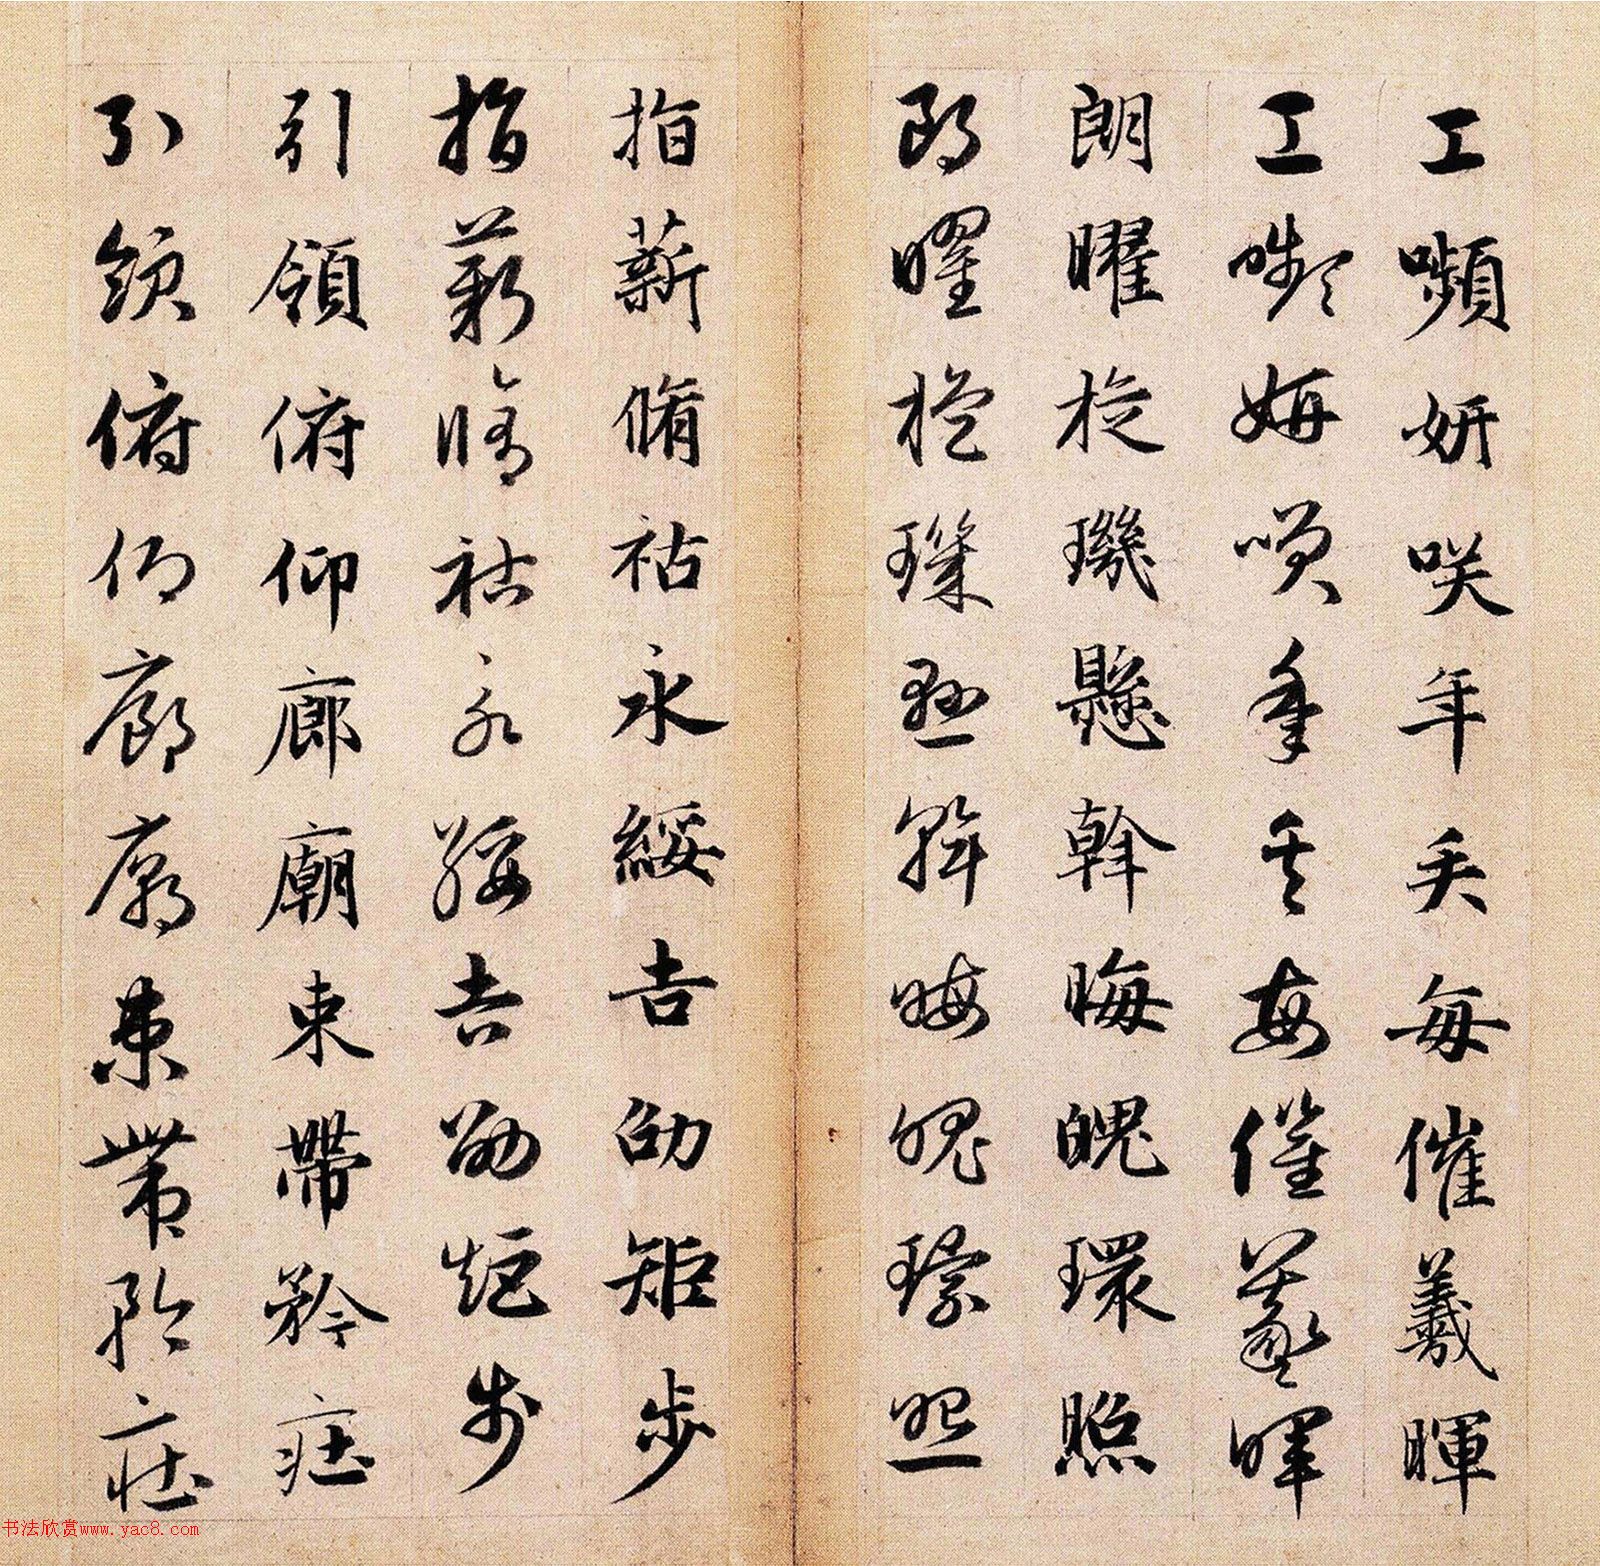 工嚬妍咲年矢毎催羲暉
工嚬妍咲年矢毎催羲暉
朗曜旋璣懸斡晦魄環照
朗曜旋璣懸斡晦魄環照
指薪脩祜永綏吉劭矩步
指薪脩祜永綏吉劭矩步
引領俯仰廊廟束帶矜莊
引領俯仰廊廟束帶矜莊
书法欣赏www.yac8.com